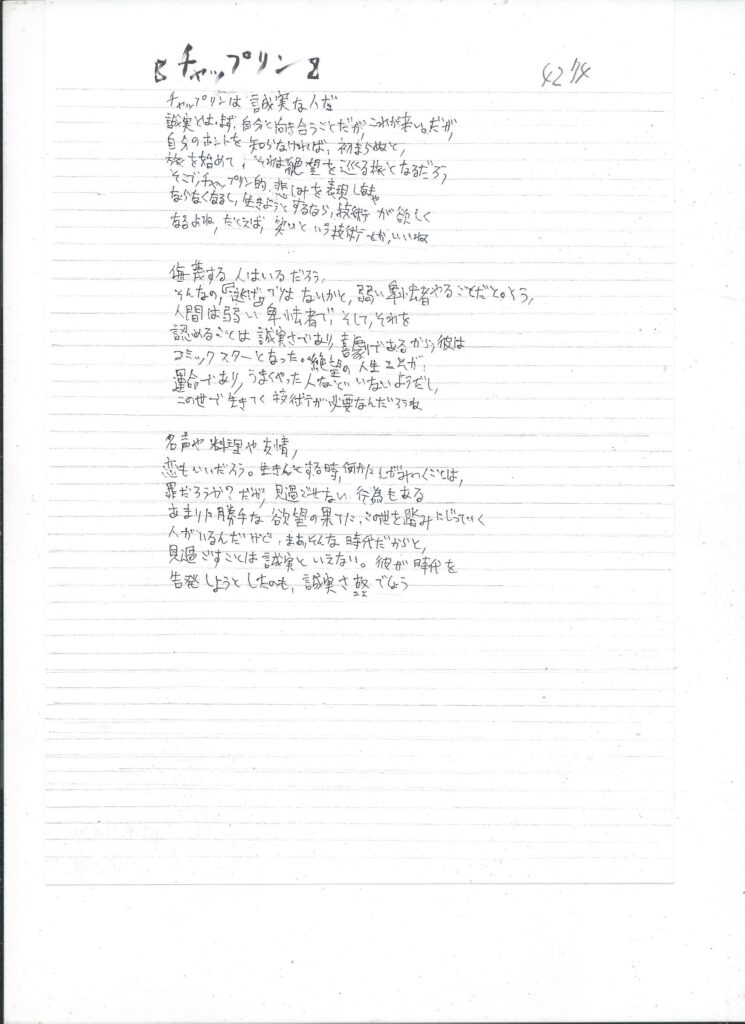 チャップリン 4274
チャップリンは誠実な人だ
誠実とはまず、自分と向き合うことだが、これが辛い。だが、
自分のホントを知らなければ、初まらぬと、
旅を始めて、それは絶望を巡る旅となるだろう
そこで、チャップリン的、悲しみを表現しなきゃ
ならなくなるし、生きようとするなら、技術が欲しく
なるよね、たとえば、笑いという技術とか、いいね
侮蔑する人はいるだろう、
そんなの、『逃げ』ではないかと、弱い卑怯者やることだと。そう、
人間は弱い卑怯者で、そして、それを
認めることは誠実さであり、喜劇であるから、彼は
コミックスターとなった。絶望の人生こそが
運命であり、うまくやった人などいないようだし、
この世で生きてく技術が必要なんだろうね
名声や料理や友情、
恋もいいだろう。生きんとする時、何かにしがみつくことは、
罪だろうか?だが、見過ごせない行為もある
あまりに勝手な欲望の果てに、この世を踏みにじっていく
人がいるんだけど、まあ、そんな時代だからと、
見過ごすことは誠実といえない。彼が時代を
告発しようとしたのも、誠実さ故でしょう